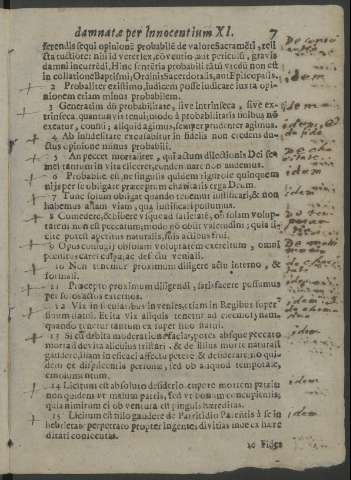 damnatæ per Innocentium XI. 7
ferendis sequi opinionē probabilē de valore Sacramēti, reli
cta tutiore: nisi id vetet lex, cōventio, aut periculū gravis
damni incurrēdi. Hinc sententia probabili tātū utēdū non est
in collatione Baptismi, Ordinis Sacerdotalis, aut Episcopalis.
2 Probabiliter existimo, Iudicem posse iudicare iuxta opi-
nionem etiam minus probabilem.
3 Generatim dū probabilitate, sive intrinseca, sive ex-
trinseca quantumvis tenui, modo à probabilitatis finibus nō
exeatur, confisi, aliquid agimus, semper prudenter agimus.
4 Ab infidelitate excusabitur in fidelis non credens du-
ctus opinione minus probabili.
5 An peccet mortaliter, qui actum dilectionis Dei se-
mel tantum in vita eliceret, condemnare non audemus.
6 Probabile est, ne singulis quidem rigorose quinquen-
nijs per se obligare præceptum charitatis erga Deum.
7 Tunc solum obligat quando tenemur iustificari, & non
habemus aliam viam, qua iustificari possumus.
8 Comedere, & bibere usque ad satietatē, ob solam volup-
tatem non est peccatum, modo nō obsit valetudini: quia li-
cite potest appetitus naturalis, suis actibus frui.
9 Opus coniugij ob solam voluptatem exercitum, omni
penitus caret culpa, ac defectu veniali.
10 Non tenemur proximum diligere actu interno, &
formali.
11 Præcepto proximum diligendi, satisfacere possumus
per solos actus externos.
12 Vix in sæcularibus invenies, etiam in Regibus super-
fluum statui. Et ita vix aliquis tenetur ad elemosynam,
quando tenetur tantum ex superfluo statui.
13 Si cū debita moderatione facias, potes absque peccato
mortali de vita alicuius tristari, & de illius morte naturali
gaudere, illam inefficaci affectu petere, & desiderare, nō qui-
dem ex displicentia personæ, sed ob aliquod temporale
emolumentum.
14 Licitum est absoluto desiderio cupere mortem patris,
non quidem ut malum patris, sed ut bonum concupientis,
quia nimirum ei obventura est pinguis hæreditas.
15 Licitum est filio gaudere de Parricidio Parentis à se in
ebrietate perpetrato propter ingentes divitias inde ex hære-
ditati consecutas.
16 Fides
idem
idem
idem
idem
idem
idem
idem